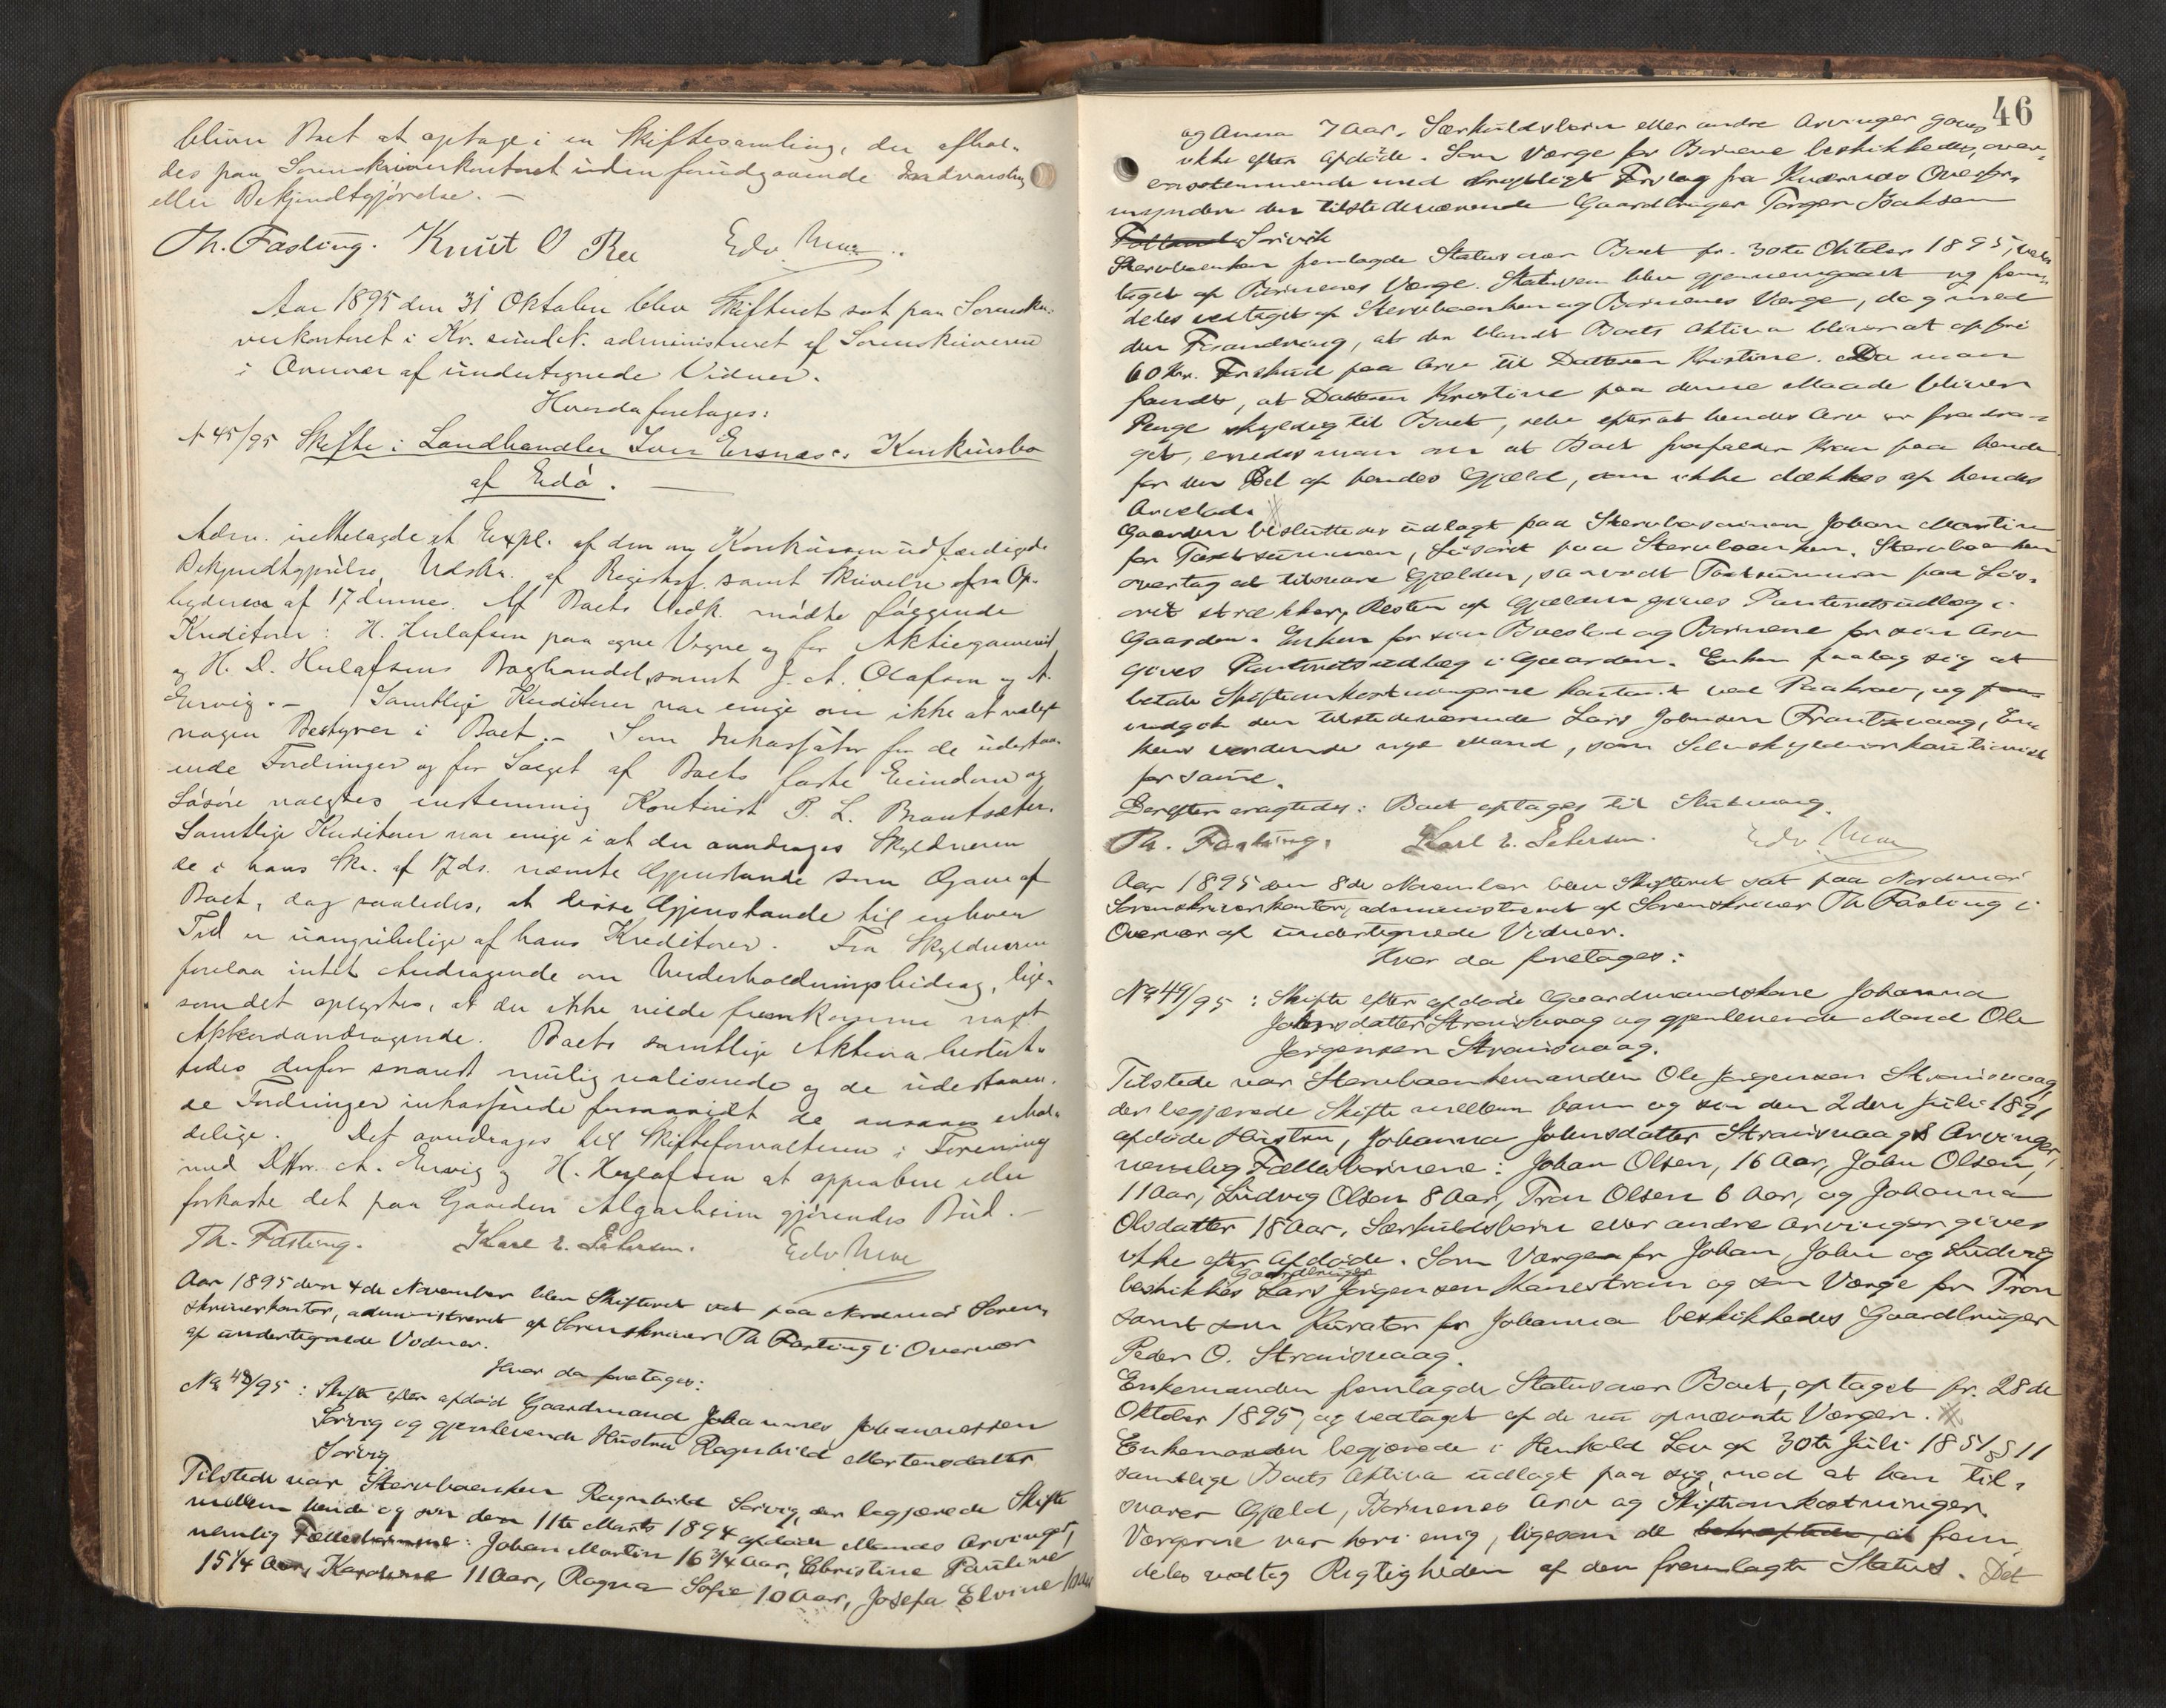 bliver Boet at optage i en Skiftesamling, der afhol-
des paa Sorenskriverkontoret uden forudgaaende Indvarsling
eller Bekjendtgjørelse. –
Th. Fasting. Knut O Ree Edv. Moe
Aar 1895 den 31 Oktober blev Skifteret sat paa Sorenskri-
verkontoret i Kr.sund N. administreret af Sorenskriveren
i Overvær af undertegnede Vidner.
Hvorda foretages:
N 45/95 Skifte i Landhandler Iver Ersnæs's Konkursbo
af Edø. –
Adm. irettelagde et Expl. af den om Konkursen udfærdigede
Bekjendtgjørelse, Udskr. af Registrf. samt Skrivelse fra Op-
byderen af 17 dennes. Af Boets Vedk. mødte følgende
Kreditorer: H. Herlofsen paa egne Vegne og for
og H. D. Herlofsens Boghandel, samt J. A. Olafsen og A.
Ervig. – Samtlige Kreditorer var enige om ikke at vælge
nogen Bestyrer i Boet. – Som Inkassator for de udestaa-
ende Fordringer og for Salget af Boets faste Eiendom og
Løsøre valgtes enstemmig Kontorist P. L. Brautsæter.
Samtlige Kreditorer var enige i at der overdrages Skyldneren
de i hans Skr. af 17 ds. nævnte Gjenstande som Gave af
Boet, dog saaledes, at disse Gjenstande til enhver
Tid er uangribelige af hans Kreditorer. Fra Skyldneren
forelaa intet Andragende om Underholdningsbidrag, lige-
som det oplystes, at der ikke vilde fremkomme noget
Akkordandragende. Boets samtlige Aktiva beslut-
tedes derfor snarest mulig realiserede og de udestaaen-
de Fordringer inkasserede forsaavidt de ansaaes erhol-
delige. Det overdrages til Skifteforvalteren i Forening
med A. Ervig og H. Herlofsen at approbere eller
forkaste det paa Gaarden Algarheim gjørendes Bud. –
Th. Fasting. Karl E. Petersen. Edv Moe
Aar 1895 den 4de November blev Skifteret sat paa Nordmør Soren-
skriverkontor, administreret af Sorenskriver Th Fasting i Overvær
af undertegnede Vidner.
Hvor da foretages:
No 48/95: Skifte efter afdød Gaardmand Johannes Johannessen
Sørvig og gjenlevende Hustru Ragnhild Martensdatter
Sørvig
Tilstede var Stervboenken Ragnhild Sørvig, der begjærede Skifte
mellem hende og sin den 11te Marts 1894 afdøde Mands Arvinger,
nemlig Fællesbørnene: Johan Martin 16 3/4 Aar, Christine Pauline
15 1/4 Aar, 11 Aar, Ragna Sofie 10 Aar, Josefa Elvine
46
og Anna 7 Aar. Særkuldsbørn eller andre Arvinger gaves
ikke efter Afdøde. Som Værge for Børnene beskikkedes, over-
ensstemmende med skriftligt Forslag fra Kvernes Overfor-
mynderi den tilstedeværende Gaardbruger Torger Isaksen
Sørvik
Stervboenken fremlagde Status over Boet pr. 30te Oktober 1895, ved-
taget af Børnenes Værge. Statusen blev gjennemgaaet og frem-
deles vedtaget af Stervboenken og Børnenes Værge, dog med
den Forandring, at der blandt Boets Aktiva bliver at opføre
60 Kr. Forskud paa Arv til Datteren Kristine. Da man
fandt, at Datteren Kristine paa denne Maade bliver
Penge skyldig til Boet, selv efterat hendes Arv er fradra-
get, enedes man om at Boet frafalder Krav paa hende
for den Del af hendes Gjæld, som ikke dækkes af hendes
Arvelod.
Gaarden besluttedes udlagt paa Stervbosønnen Johan Martin
for Taxtsummen, Løsøret paa Stervboenken. Stervboenken
overtog at tilsvare Gjælden, saavidt Taxtsummen paa Løs-
øret strækker, Resten af Gjælden gives Panteretsudlæg i
Gaarden. Enken for sin Boeslod og Børnene for sin Arv
gives Panteretsudlæg i Gaarden. Enken paatog sig at
betale Skifteomkostningerne kontant ved Paakrav, og
indgik den tilstedeværende Lars Johnsen Frantzvaag, En-
kens vordende nye Mand, som Selvskyldnerkautionist
for samme.
Derefter eragtedes: Boet optages til Slutning.
Th. Fasting. Karl E. Petersen. Edv Moe
Aar 1895 den 8de November blev Skifteret sat paa Nordmør
Sorenskriverkontor, administreret af Sorenskriver Th Fasting i
Overvær af undertegnede Vidner.
Hvor da foretages:
No 49/95: Skifte efter afdøde Gaardmandskone Johanna
Johnsdatter Straumsvaag og gjenlevende Mand Ole
Jørgensen Straumsvaag.
Tilstede var Stervboenkemanden Ole Jørgensen Straumsvaag,
der begjærede Skifte mellem ham og sin den 2den Juli 1891
afdøde Hustru, Johanna Johnsdatter Straumsvaags Arvinger,
nemlig Fællesbørnene: Johan Olsen, 16 Aar, John Olsen,
11 Aar, Ludvig Olsen 8 Aar, Tron Olsen 6 Aar, og Johanna
Olsdatter 18 Aar. Særkuldsbørn eller andre Arvinger gives
ikke efter Afdøde. Som Værge for Johan, John og Ludvig
Gaardbruger
beskikkes Lars Jørgensen Kanestrøm og som Værge for Tron
samt som Kurator for Johanna beskikkedes Gaardbruger
Peder O. Straumsvaag.
Enkemanden fremlagde Status over Boet, optaget pr. 28de
Oktober 1895, og vedtaget af de nu opnævnte Værger.
Enkemanden begjærede i Henhold Lov af 30te Juli 1851 § 11
samtlige Boets Aktiva udlagt paa sig mod at han til-
svarer Gjæld, Børnenes Arv og Skifteomkostninger.
Værgerne var heri enig, ligesom de frem-
deles vedtog Rigtigheden af den fremlagte Status. Det